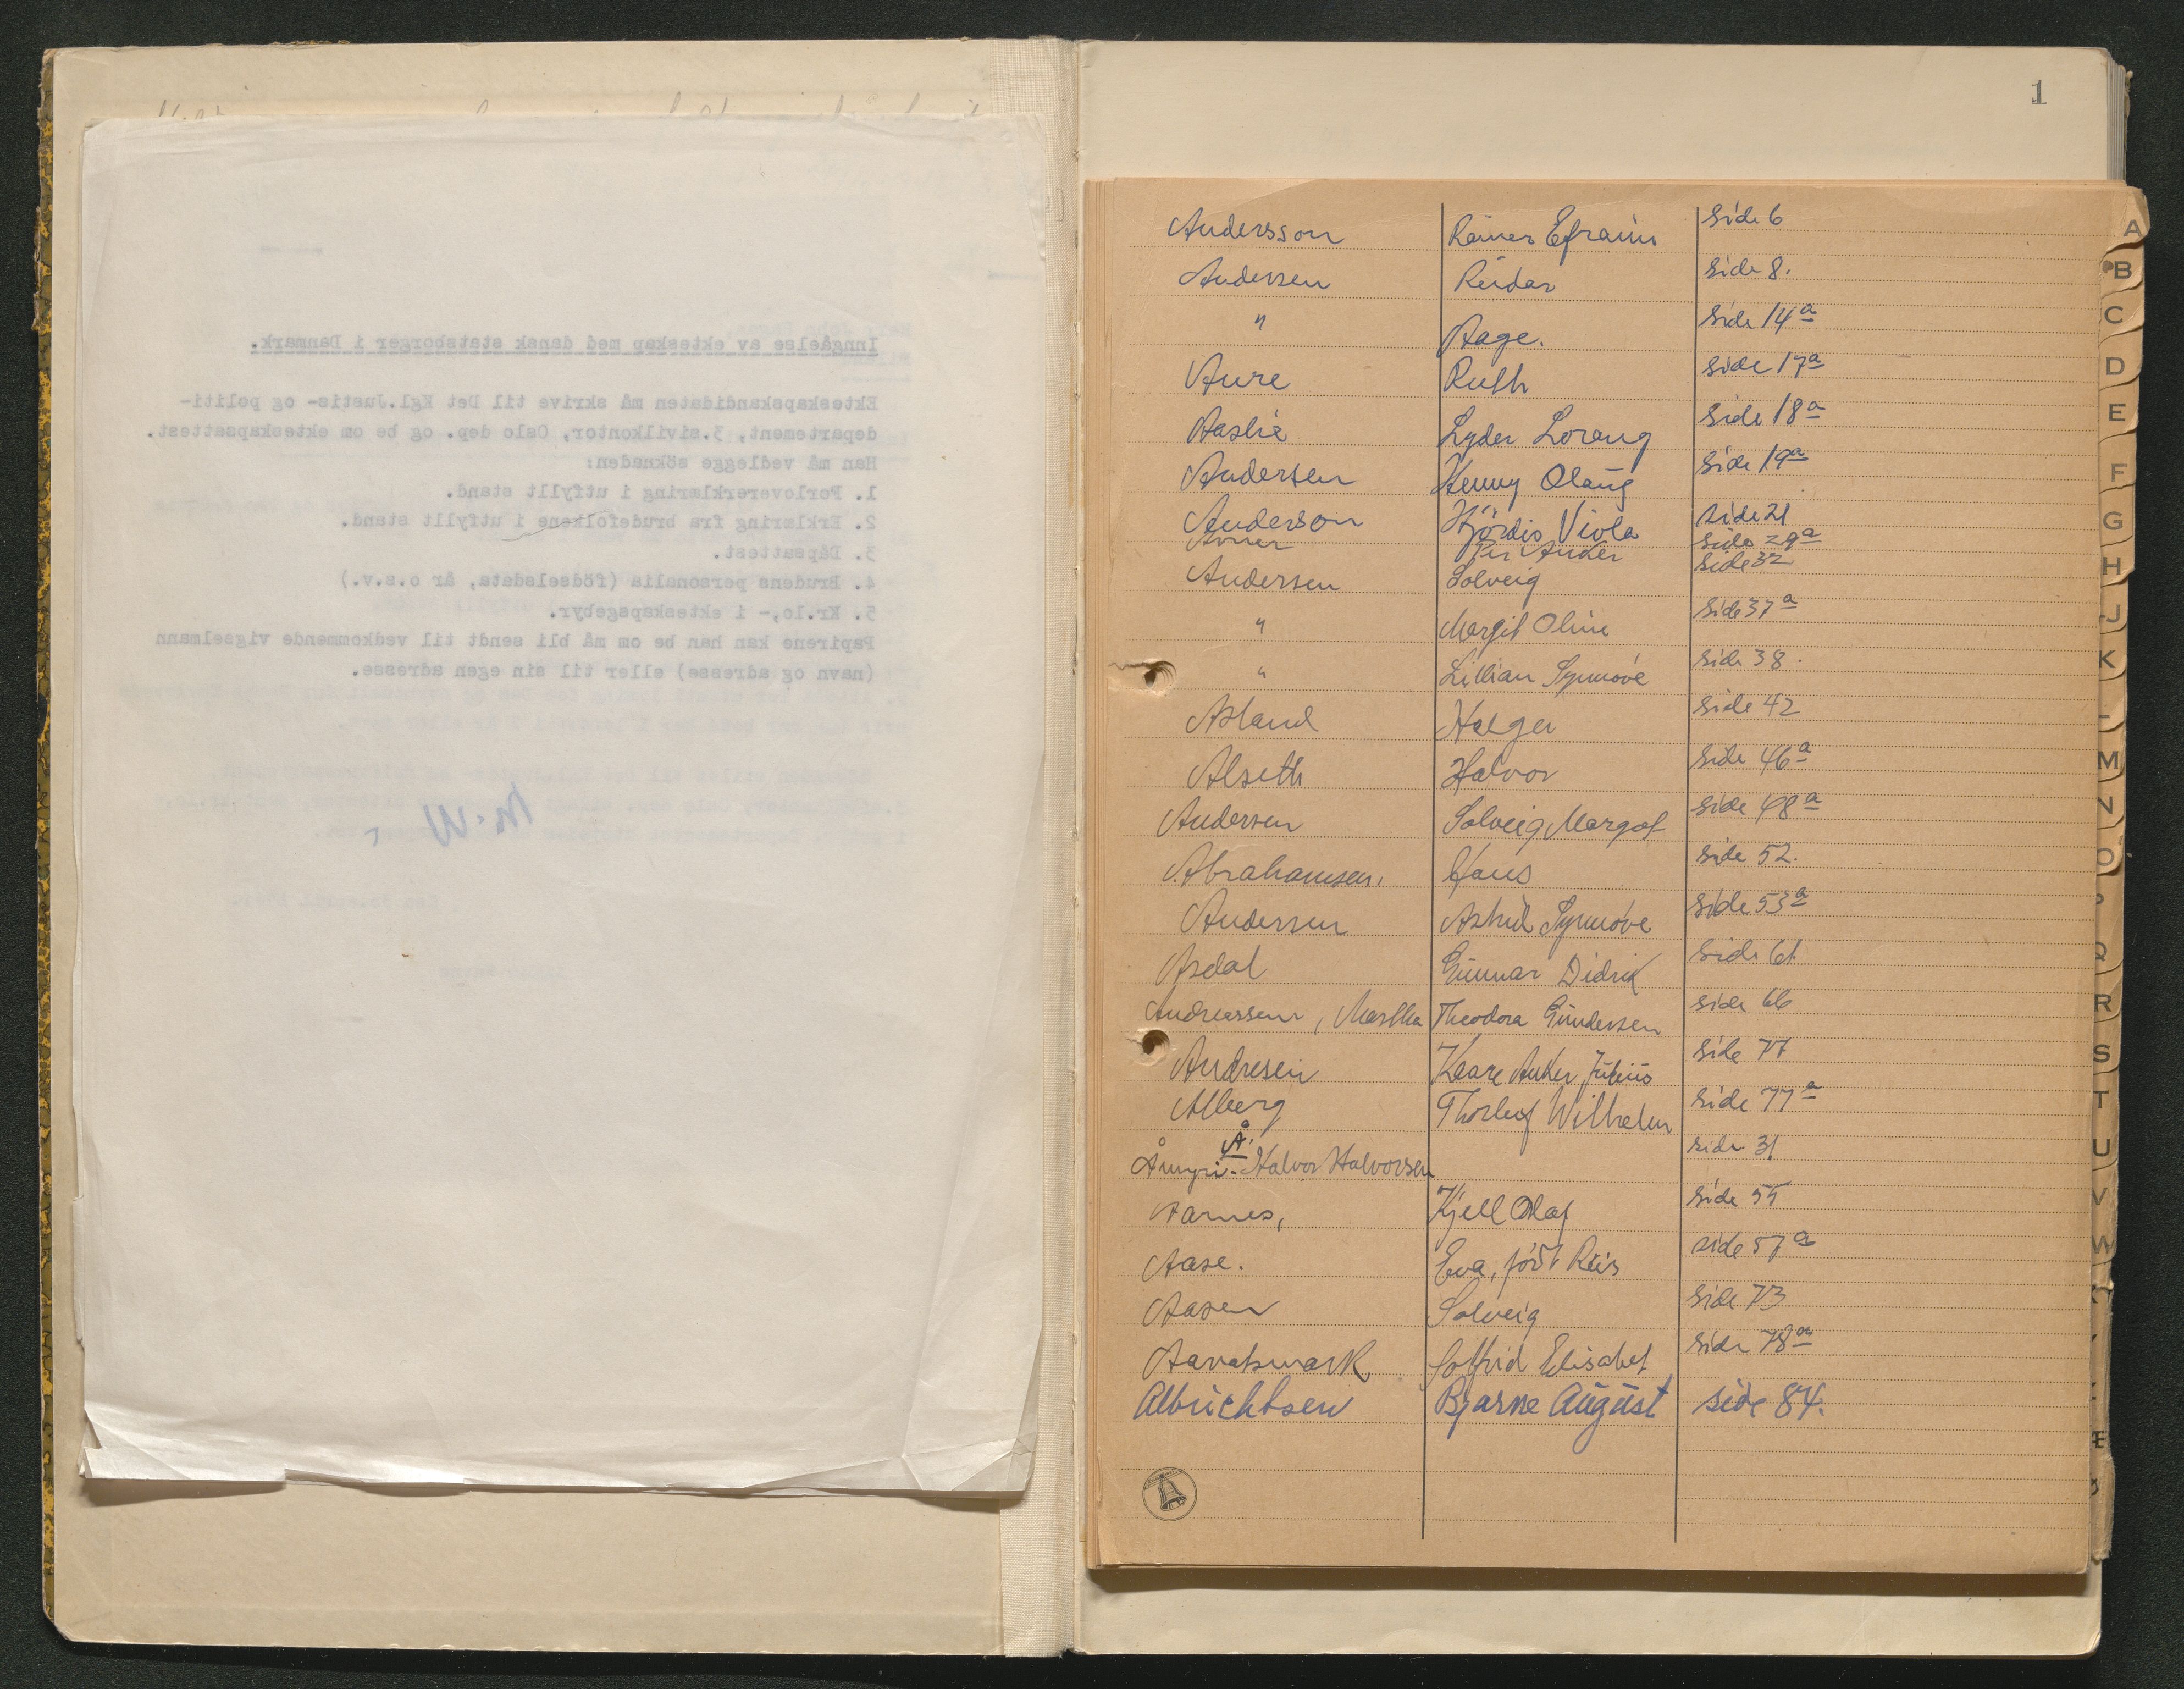 Inngåelse av ekteskap med dansk statsborger i Danmark.
Ekteskapskandidaten må skrive til Det Kgl.Justis- og politi-
departement, 3.sivilkontor, Oslo dep. og be om ekteskapsattest.
Han må vedlegge söknaden:
1. Forlovererklæring i utfyllt stand.
2. Erklæring fra brudefolkene i utfyllt stand.
3. Dåpsattest.
4. Brudens personalia (födselsdata, år o.s.v.)
5. Kr.10,- i ekteskapsgebyr.
Papirene kan han be om må bli sendt til vedkommende vigselmann
(navn og adresse) eller til sin egen adresse.
1
Andersson Rainer Efraim side 6
Andersen Reidar side 8.
" Aage. side 14a
Aure Ruth side 17a
Aaslie Lyder Lorang side 18a
Andersen Henny Olaug side 19a
Anderson Hjördis Viola side 21
Per Anker side 29a
Andersen Solveig side 32
" Margit Oline side 37a
" Lillian Synnöve side 38.
Åsland Holger side 42
Alseth Halvor side 46a
Andersen Solveig Margot side 48a
Abrahamsen, Hans side 52.
Andersen Astrid Synnöve side 53a
Asdal Gunnar Didrik side 61
Andreassen, Martha Theodora Gundersen side 66
Andresen Kaare Anker Julius side 77
Alberg Thorleif Wilhelm side 77a
Å.
Halvor Halvorsen side 31
Aarnes, Kjell Olaf side 55
Aase. Eva, född Reis side 57a
Aasen Solveig side 73
Aavatsmark Solfrid Elisabet side 78a
Albrichtsen Bjarne August side 84.
A
B
C
D
E
F
G
H
J
K
M
N
O
Q
R
S
T
U
V
W
Æ